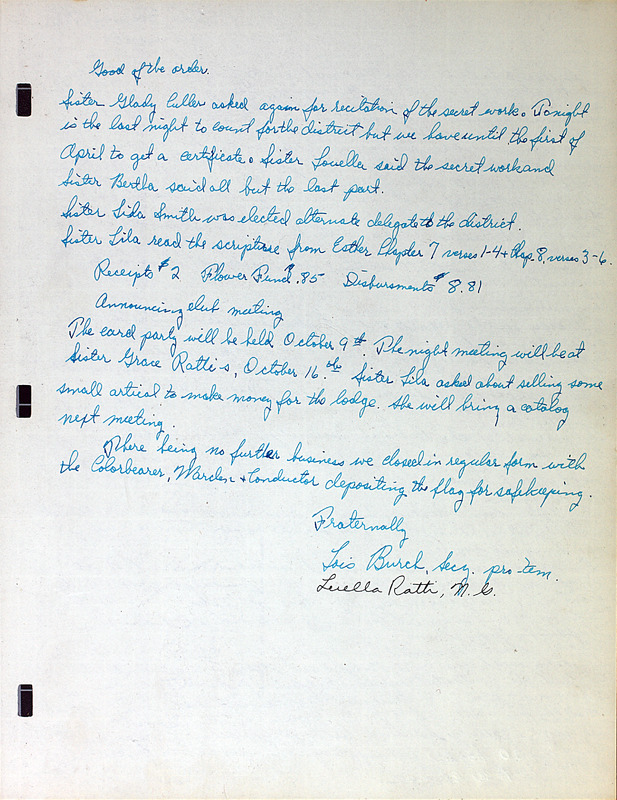 Good of the order.
Sister Glady Culler asked again for recitation of the secret work. Tonight
is the last night to count for the district but we have until the first of
April to get a certificate. Sister Louella said the secret work and
Sister Bertha said all but the last part.
Sister Lida Smith was elected alternate delegate to the district.
Sister Lila read the scripture from Esther Chapter 7 verses 1-4 + Chap. 8, verses 3-6.
Receipts $2 Flower Fund $.85 Disbursments $8.81
Announcing club meeting
The card party will be held October 9th. The night meeting will be at
Sister Grace Ratti's, October 16th. Sister Lila asked about selling some
small artical to make money for the lodge. She will bring a catalog
next meeting.
There being no further business we closed in regular form with
the Colorbearer, Warden + Conductor depositing the flag for safekeeping.
Fraternally
Lois Burch, Secy. pro-tem.
Luella Ratti, N.G.